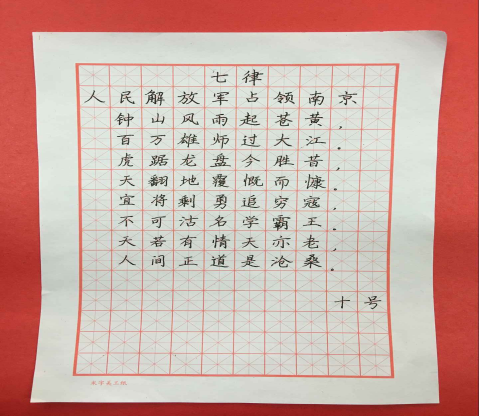 七律
人民解放军占领南京
钟山风雨起苍黄，
百万雄师过大江。
虎踞龙盘今胜昔，
天翻地覆慨而慷。
宜将剩勇追穷寇，
不可沽名学霸王。
天若有情天亦老，
人间正道是沧桑。
十号